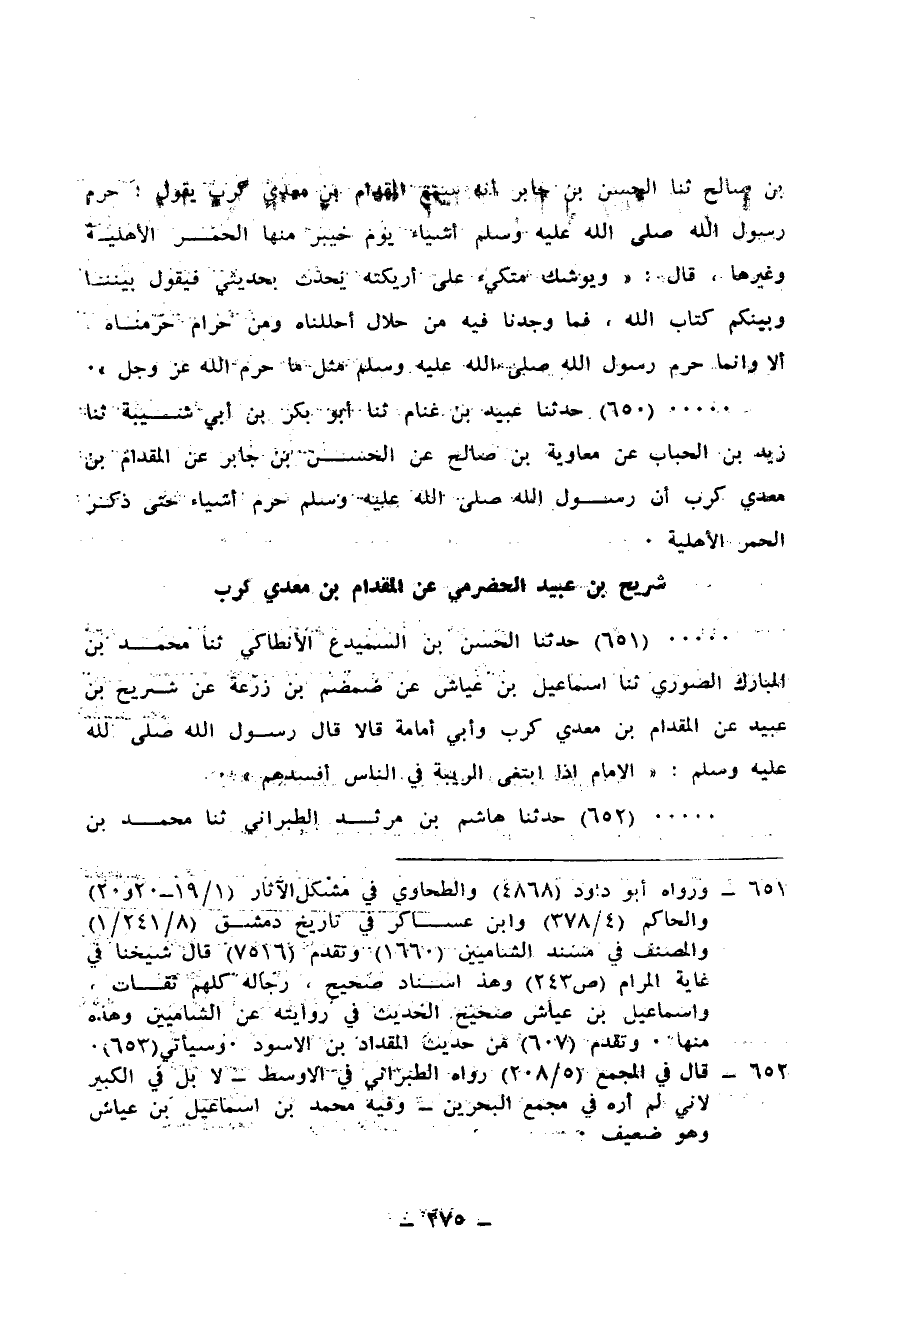 بن صالح ثنا الحسن بن جابر انه سمع المقدام بن معدي كرب يقول : حرم
رسول الله صلى الله عليه وسلم أشياء يوم خيبر منها الحمـر الأهليـة
وغيرها ، قال : « ويوشك متكيء على أريكته يحدث بحديثي فيقول بيننـا
وبينكم كتاب الله ، فما وجدنا فيه من حلال أحللناه ومن حرام حرمنـاه .
ألا وانما حرم رسول الله صلى الله عليه وسلم مثل ما حرم الله عز وجل » ٠
٠٠٠٠٠ (٦٥٠) حدثنا عبيد بن غنام ثنا أبو بكر بن أبي شـيبة ثنا
زيد بن الحباب عن معاوية بن صالح عن الحسـن بن جابر عن المقدام بن
معدي كرب أن رسـول الله صلى الله عليه وسلم حرم أشياء حتى ذكـر
الحمر الأهلية ٠
شريح بن عبيد الحضرمي عن المقدام بن معدي كرب
٠٠٠٠٠ (٦٥١) حدثنا الحسن بن السميدع الأنطاكي ثنا محمـد بن
المبارك الصوري ثنا اسماعيل بن عياش عن ضمضم بن زرعة عن شـريح بن
عبيد عن المقدام بن معدي كرب وأبي أمامة قالا قال رسـول الله صلى الله
عليه وسلم : « الامام اذا ابتغى الريبة في الناس أفسدهم » ٠
٠٠٠٠٠ (٦٥٢) حدثنا هاشم بن مرثـد الطبراني ثنا محمـد بن
٦٥١ ـ ورواه أبو داود (٤٨٦٨) والطحاوي في مشكل الآثار (١/١٩ـ٢٠و٢٠)
والحاكم (٣٧٨/٤) وابن عسـاكر في تاريخ دمشـق (١/٢٤١/٨)
والمصنف في مسند الشاميين (١٦٦٠) وتقدم (٧٥١٦) قال شيخنا في
غاية المرام (ص٢٤٣) وهذ اسـناد صحيح ، رجاله كلهم ثقـات ،
واسماعيل بن عياش صحيح الحديث في روايته عن الشاميين وهذه
منها ٠ وتقدم (٦٠٧) من حديث المقداد بن الاسود ٠ وسيأتي (٦٥٣) ٠
٦٥٢ ـ قال في المجمع (٢٠٨/٥) رواه الطبراني في الاوسط ـ لا بل في الكبير
لاني لم أره في مجمع البحرين ـ وفيه محمد بن اسماعيل بن عياش
وهو ضعيف ٠
ـ ٢٧٥ ـ